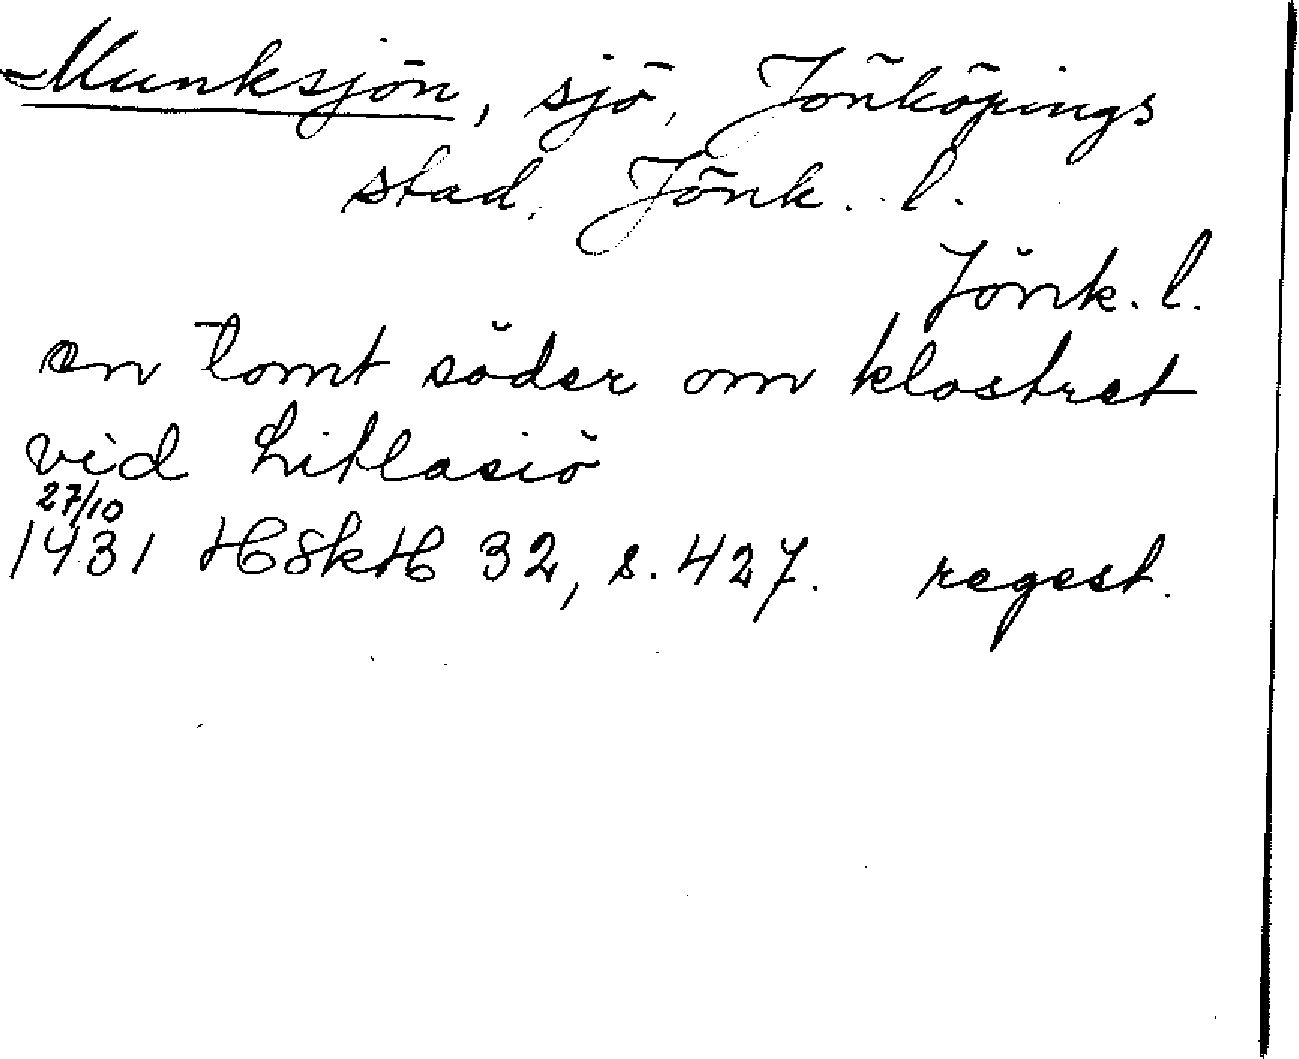 Munksjön, sjö, Jönköpings
stad, Jönk. l.
Jönk. l.
en tomt söder om klostret
vid Litlasiö
27/10
1431 HSkH 32, s. 427. regest.